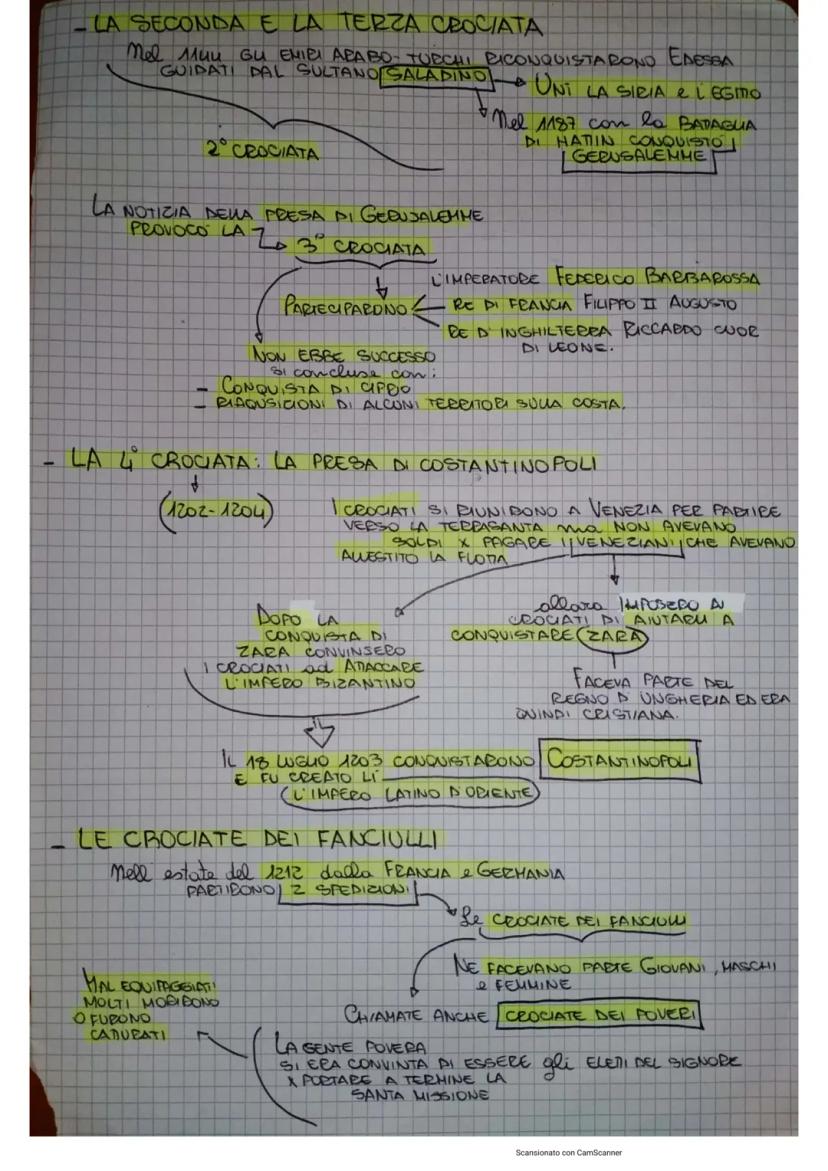 - LA SECONDA E LA TERZA CROCIATA
Nel 1144 GLI EMIRI ARABO-TURCHI RICONQUISTARONO EDESSA
GUIDATI DAL SULTANO SALADINO
UNÌ LA SIRIA e L'EGITTO
Nel 1187 con la BATTAGLIA
DI HATTIN CONQUISTÒ
GERUSALEMME
2° CROCIATA
LA NOTIZIA DELLA PRESA DI GERUSALEMME
PROVOCÒ LA
3° CROCIATA
L'IMPERATORE FEDERICO BARBAROSSA
PARTECIPARONO
RE DI FRANCIA FILIPPO II AUGUSTO
RE D'INGHILTERRA RICCARDO CUOR
DI LEONE.
NON EBBE SUCCESSO
si concluse con:
- CONQUISTA DI CIPRO
- RIAQUSIZIONI DI ALCUNI TERRITORI SULLA COSTA.
- LA 4° CROCIATA: LA PRESA DI COSTANTINOPOLI
(1202-1204)
I CROCIATI SI RIUNIRONO A VENEZIA PER PARTIRE
VERSO LA TERRASANTA ma NON AVEVANO
SOLDI X PAGARE I VENEZIANI CHE AVEVANO
ALLESTITO LA FLOTTA
allora IMPOSERO AI
CROCIATI DI AIUTARLI A
CONQUISTARE ZARA
DOPO LA
CONQUISTA DI
ZARA CONVINSERO
I CROCIATI ad ATTACCARE
L'IMPERO BIZANTINO
FACEVA PARTE DEL
REGNO D'UNGHERIA ED ERA
QUINDI CRISTIANA.
IL 18 LUGLIO 1203 CONQUISTARONO COSTANTINOPOLI
E FU CREATO LÌ
L'IMPERO LATINO D'ORIENTE
- LE CROCIATE DEI FANCIULLI
Nell'estate del 1212 dalla FRANCIA e GERMANIA
PARTIRONO 2 SPEDIZIONI
Le CROCIATE DEI FANCIULLI
NE FACEVANO PARTE GIOVANI, MASCHI
e FEMMINE
CHIAMATE ANCHE CROCIATE DEI POVERI
MAL EQUIPAGGIATI
MOLTI MORIRONO
O FURONO
CATTURATI
LA GENTE POVERA
SI ERA CONVINTA DI ESSERE gli ELETTI DEL SIGNORE
X PORTARE A TERMINE LA
SANTA MISSIONE
Scansionato con CamScanner